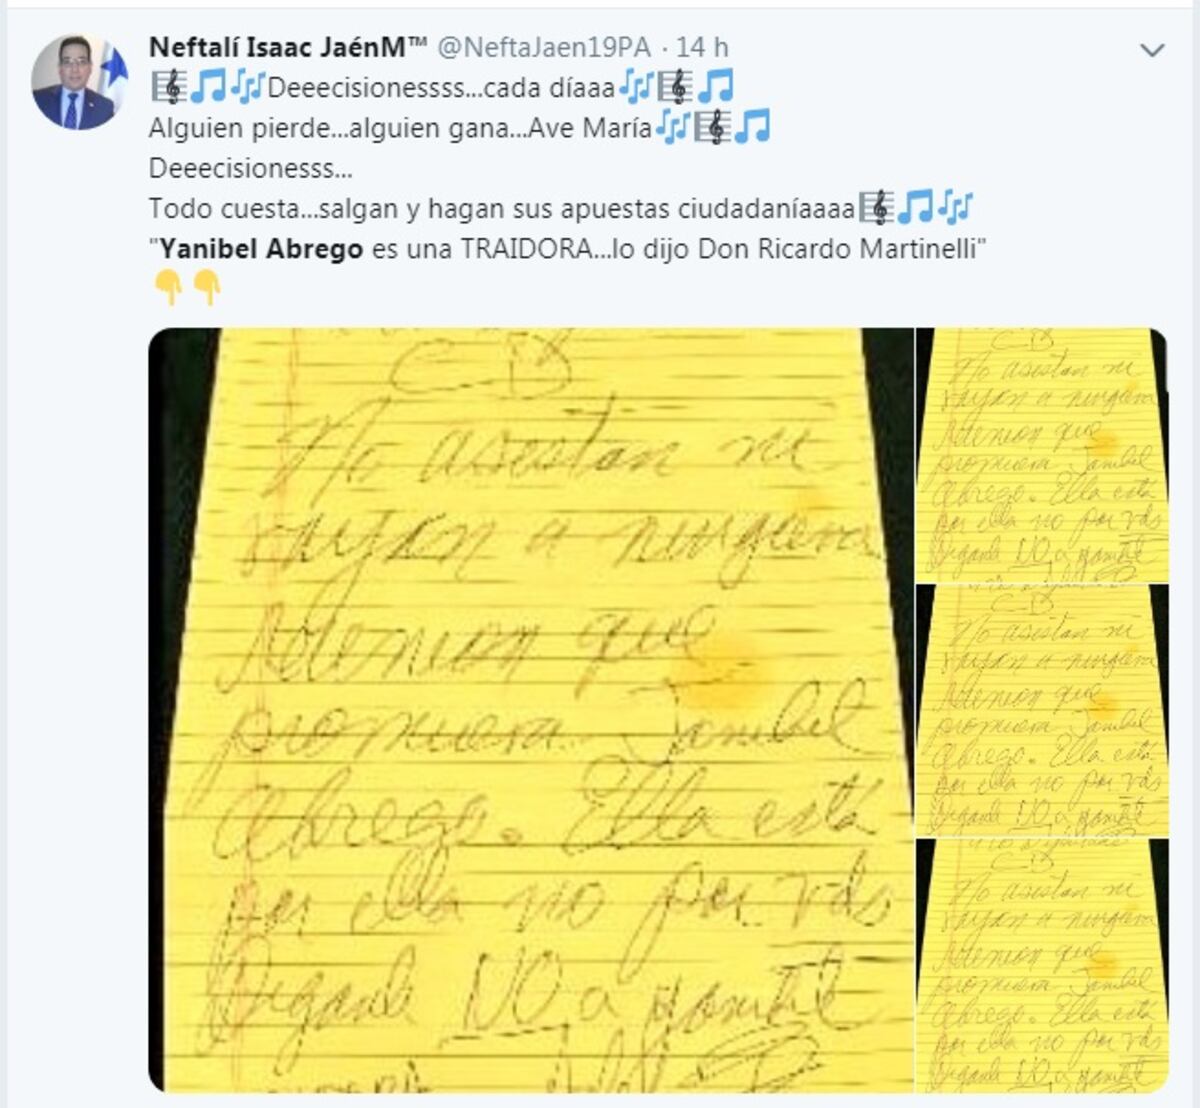 Neftalí Isaac JaénM™ @NeftaJaen19PA · 14 h
🎼🎵🎶Deeecisionessss...cada díaaa🎶🎼🎵
Alguien pierde...alguien gana...Ave María🎶🎼🎵
Deeecisionesss...
Todo cuesta...salgan y hagan sus apuestas ciudadaníaaaa🎼🎵🎶
"Yanibel Abrego es una TRAIDORA...lo dijo Don Ricardo Martinelli"
👇👇
CD
No asistan ni
vayan a ninguna
reunion que
promueva Janibel
Abrego. Ella está
por ella no por vds
Digale NO a Yanibel
No asistan ni
vayan a ninguna
reunion que
promueva Janibel
Abrego. Ella está
por ella no por vds
Digale NO a Yanibel
CD
No asistan ni
vayan a ninguna
reunion que
promueva Janibel
Abrego. Ella está
por ella no por vds
Digale NO a Yanibel
CD
No asistan ni
vayan a ninguna
reunion que
promueva Janibel
Abrego. Ella está
por ella no por vds
Digale NO a Yanibel